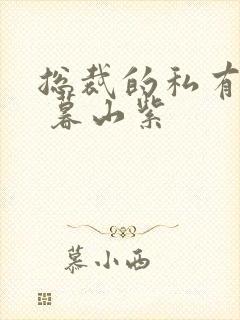 总裁的私有
暮山紫
慕小西